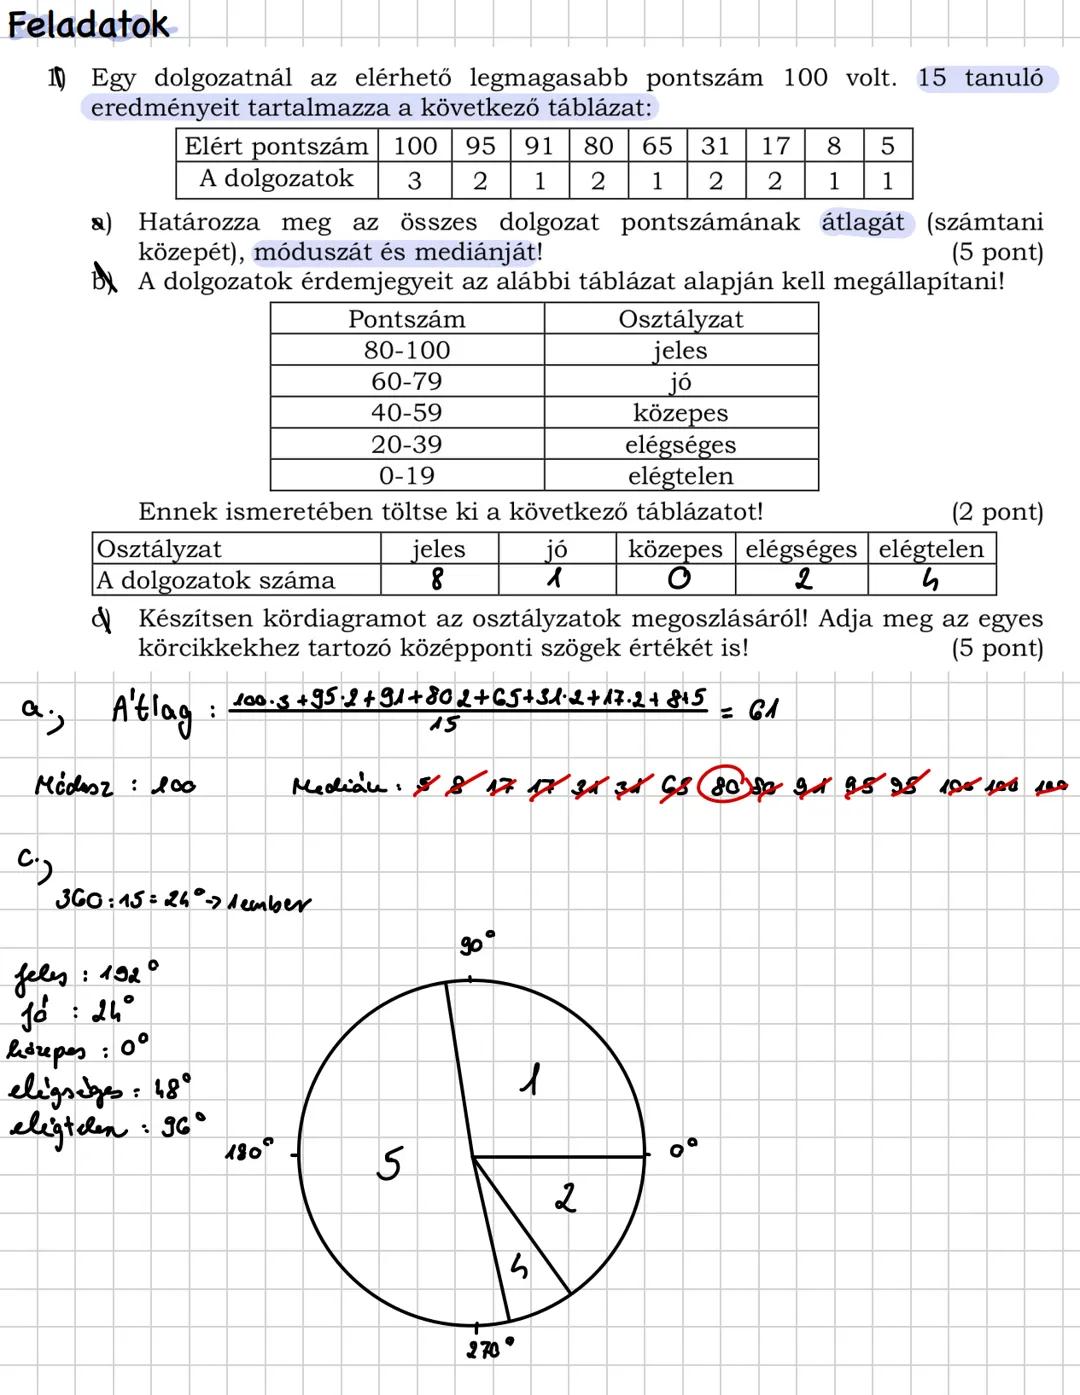 Feladatok
1) Egy dolgozatnál az elérhető legmagasabb pontszám 100 volt. 15 tanuló
eredményeit tartalmazza a következő táblázat:
Elért pontszám 100 95 91 80 65 31 17 8 5
A dolgozatok 3 2 1 2 1 2 2 1 1
a) Határozza meg az összes dolgozat pontszámának átlagát (számtani
közepét), móduszát és mediánját! (5 pont)
b) A dolgozatok érdemjegyeit az alábbi táblázat alapján kell megállapítani!
Pontszám Osztályzat
80-100 jeles
60-79 jó
40-59 közepes
20-39 elégséges
0-19 elégtelen
Ennek ismeretében töltse ki a következő táblázatot! (2 pont)
Osztályzat jeles jó közepes elégséges elégtelen
A dolgozatok száma 8 1 0 2 4
c) Készítsen kördiagramot az osztályzatok megoszlásáról! Adja meg az egyes
körcikkekhez tartozó középponti szögek értékét is! (5 pont)
a., Átlag : 100·3+95·2+91+80·2+65+31·2+17·2+8+5 / 15 = 61
Módusz : 100 Medián : 5 8 17 17 31 31 65 80 80 91 95 95 100 100 100
c.,
360:15=24°→1ember
jeles : 192°
jó : 24°
közepes : 0°
elégséges : 48°
elégtelen : 96°
90°
1
180°
5
0°
2
4
270°